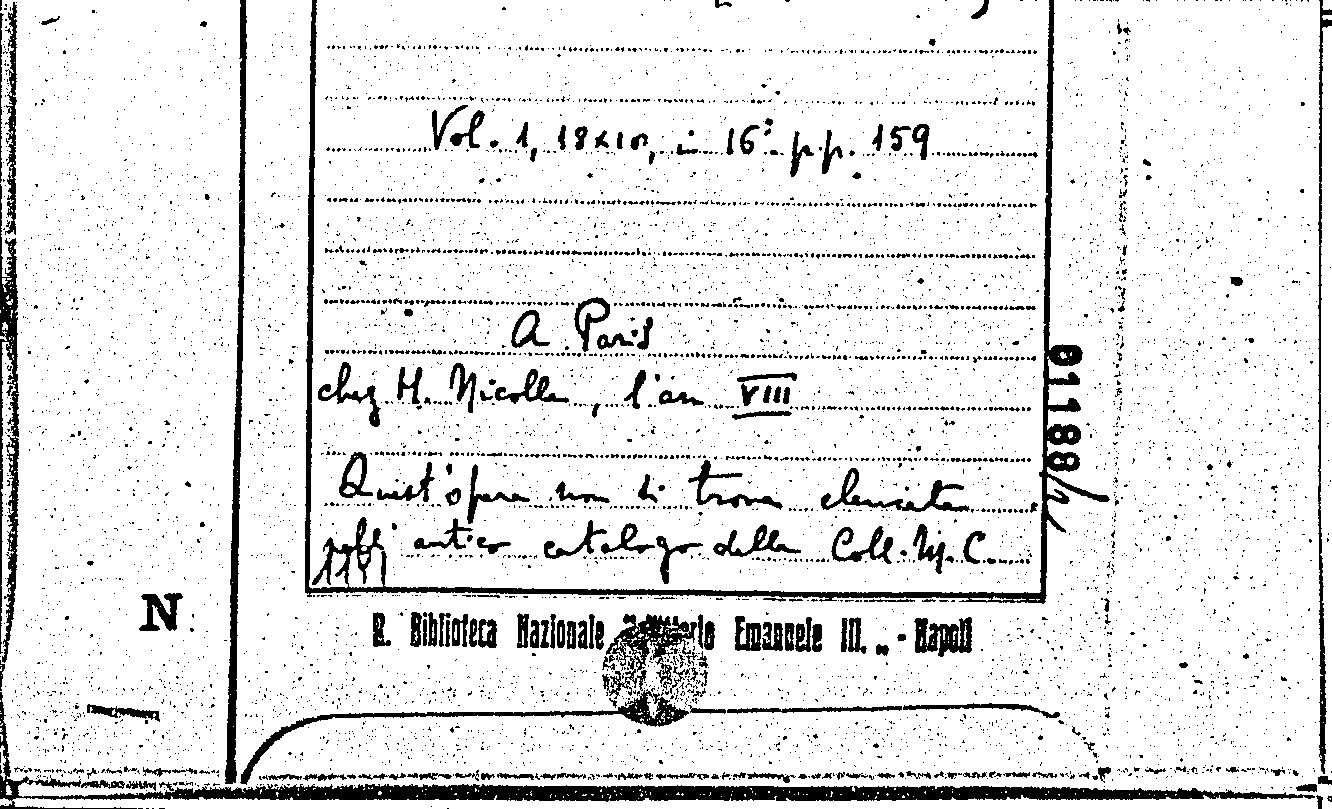 Vol. 1, 18x10, in 16º. pp. 159
A Paris
chez H. Nicolle, l'an VIII
Quest'opera non si trova elencata
nell' antico catalogo della Coll. M. C.
N
R. Biblioteca Nazionale "Vittorio Emanuele III. „ - Napoli
01188